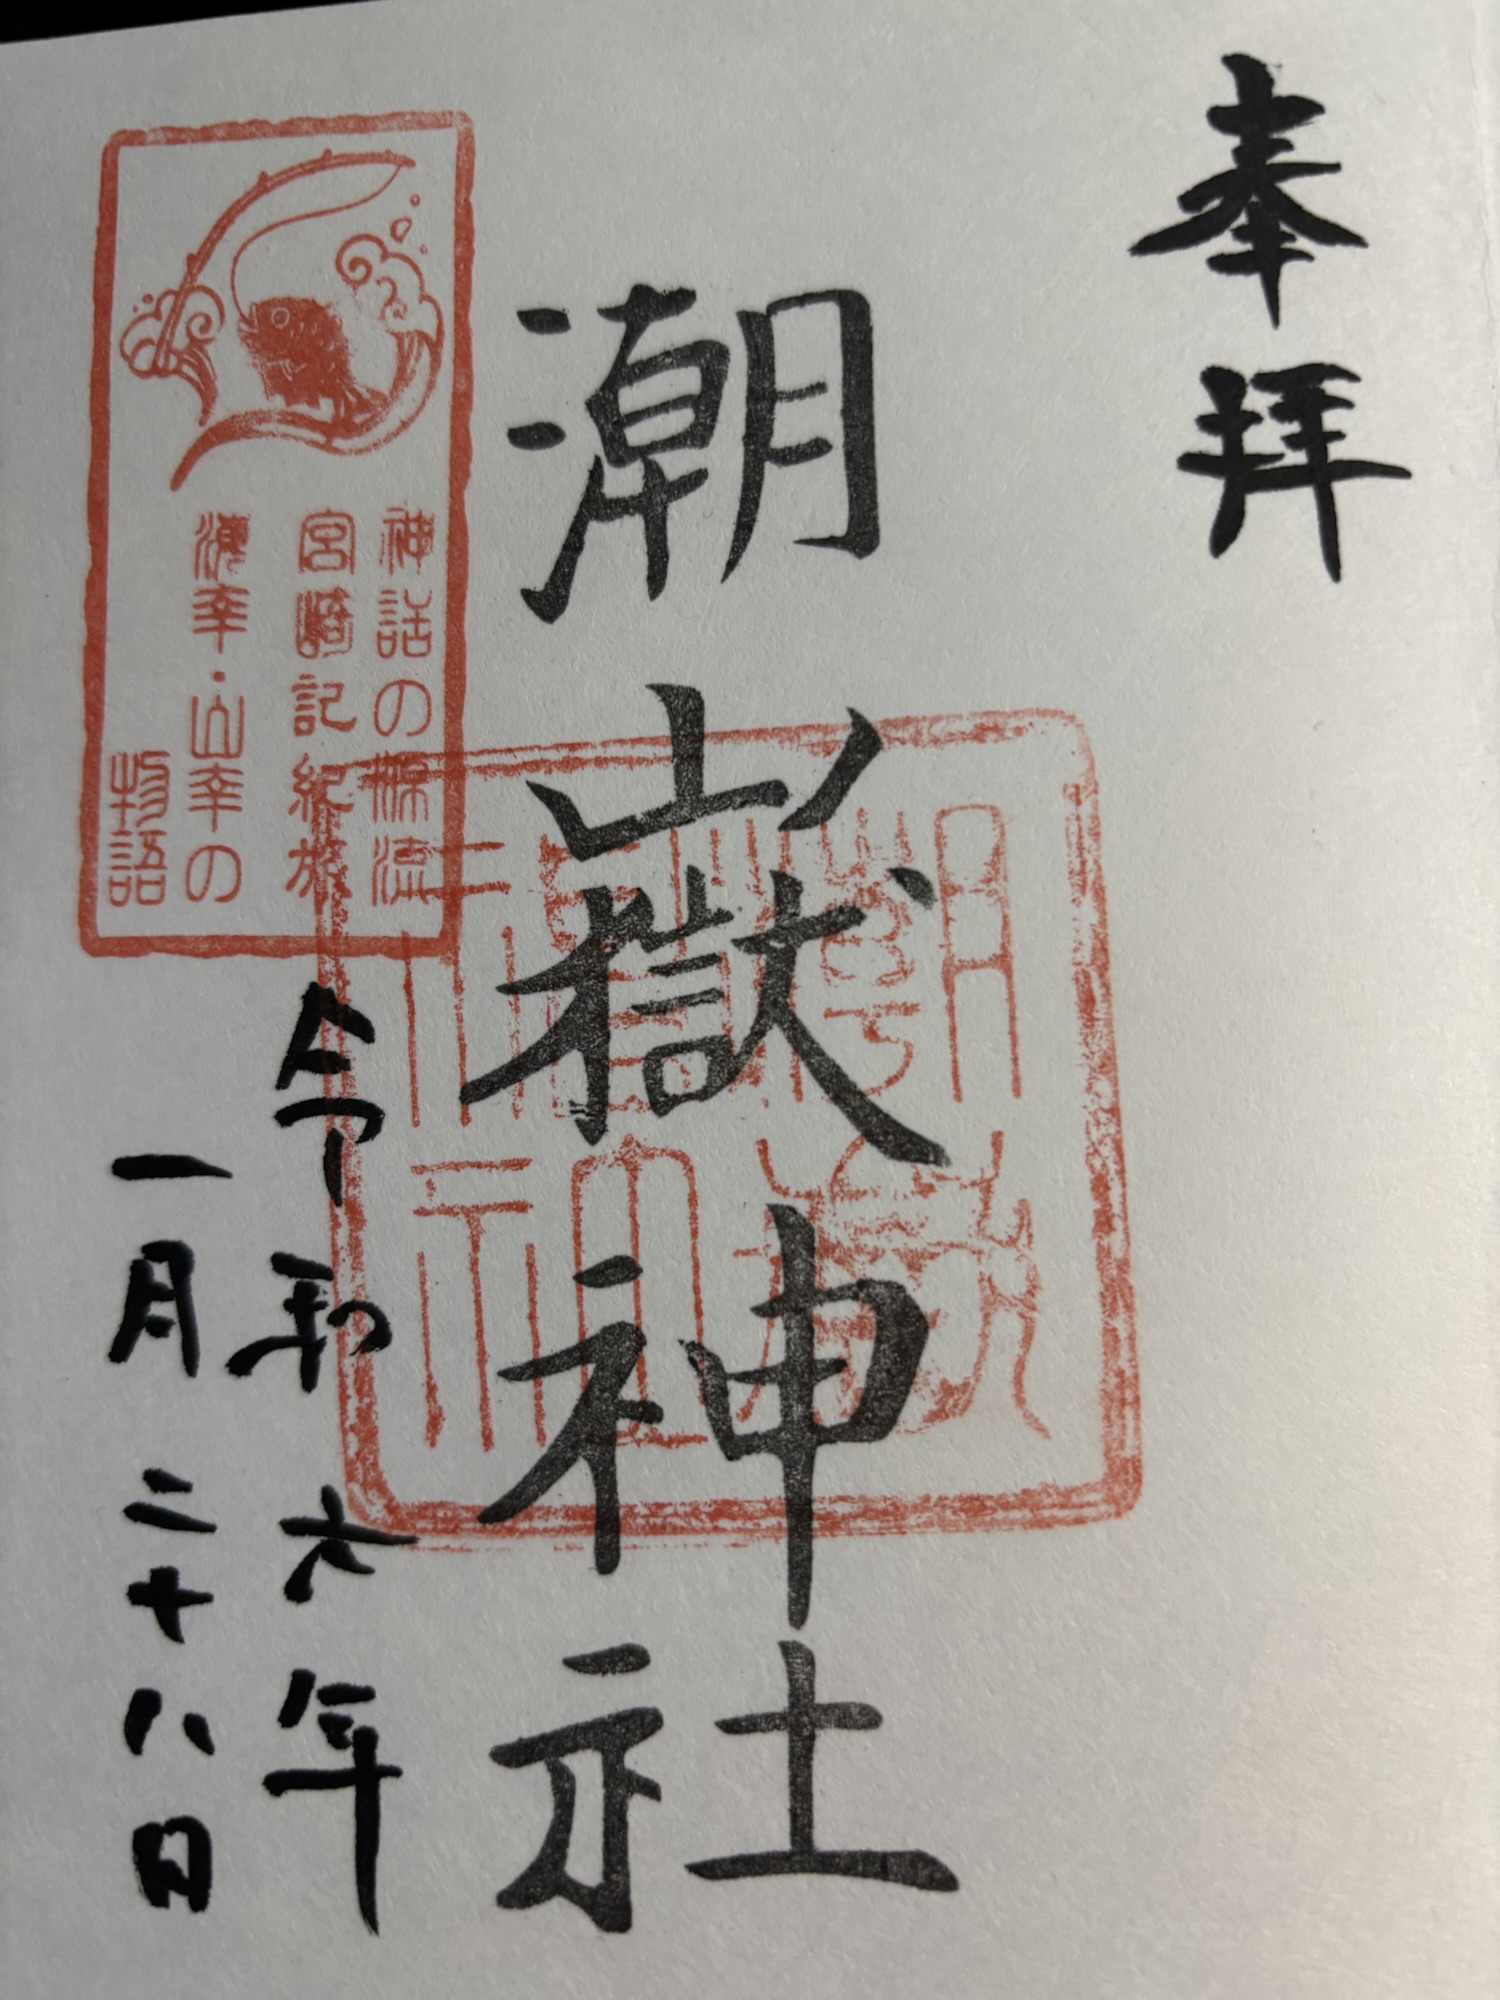 奉拝
潮嶽神社
令和六年
一月二十八日
神話の源流
宮崎記紀旅
海幸・山幸の
物語